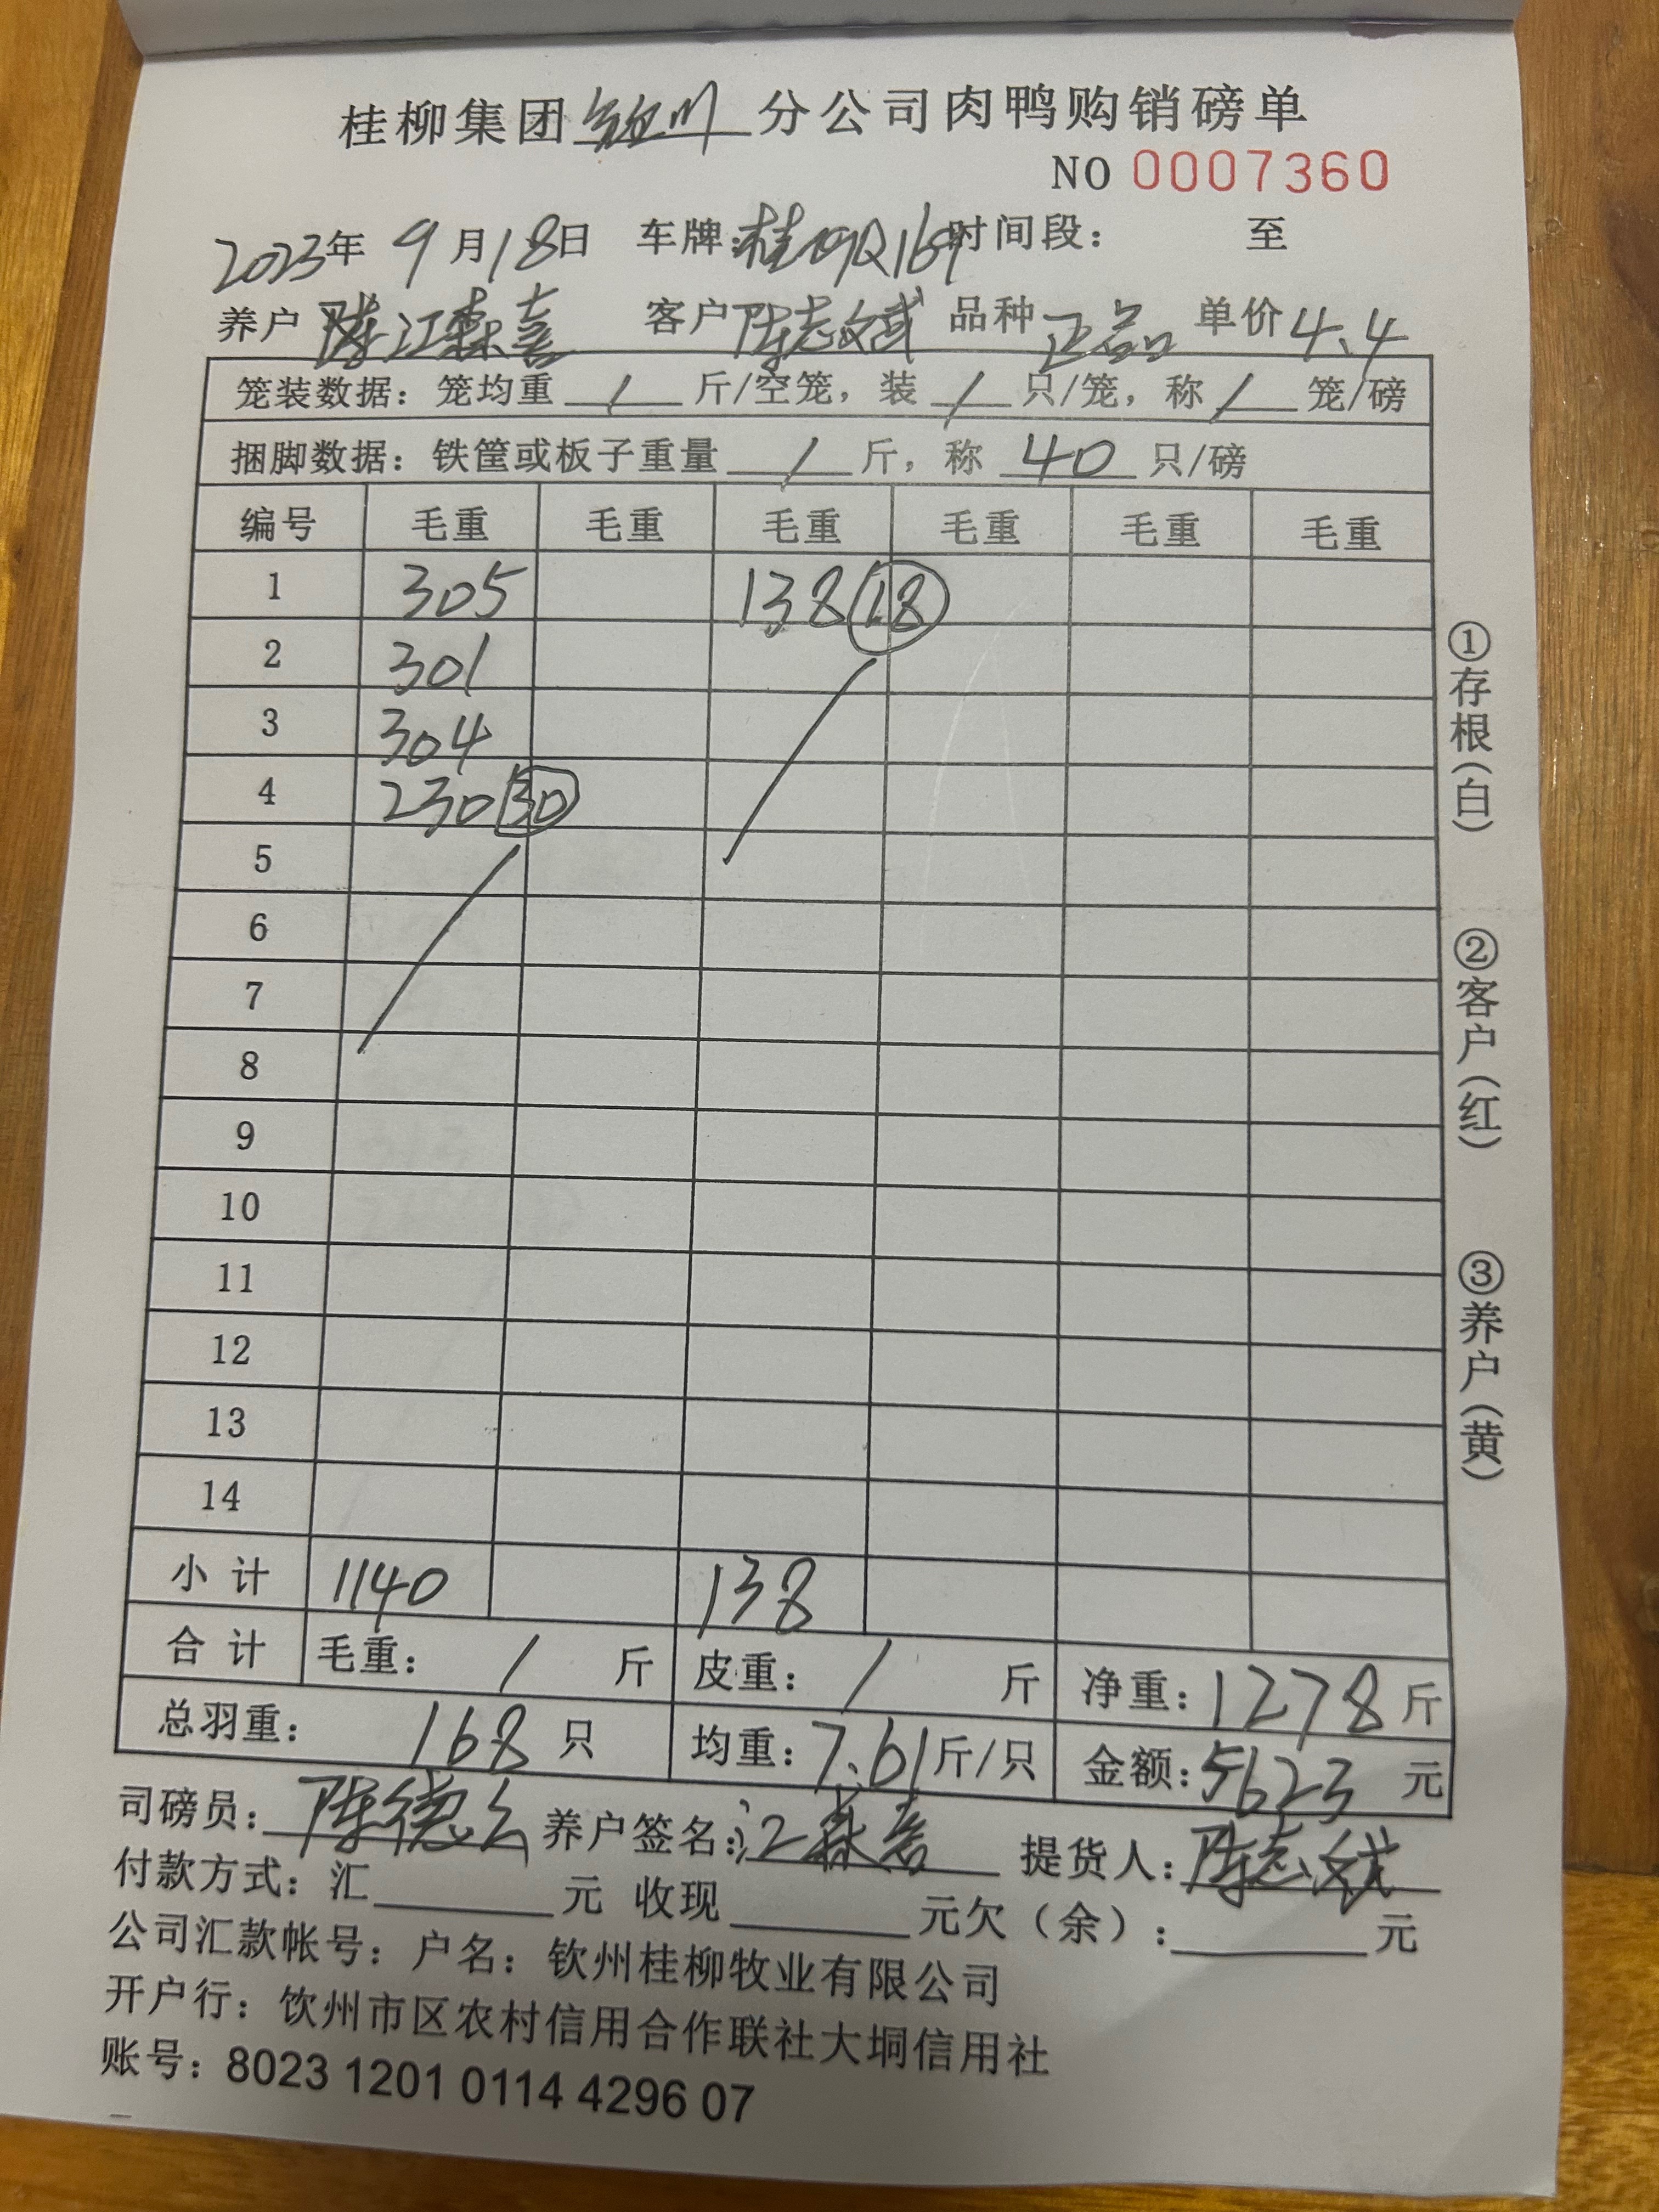 桂柳集团钦州分公司肉鸭购销磅单
NO 0007360
2023年 9月18日 车牌: 时间段: 至
养户 江森喜 客户 陈志斌 品种 正品 单价 4.4
笼装数据: 笼均重 / 斤/空笼, 装 / 只/笼, 称 / 笼/磅
捆脚数据: 铁筐或板子重量 / 斤, 称 40 只/磅
编号 毛重 毛重 毛重 毛重 毛重 毛重
1 305 138 18
2 301
3 304
4 230 30
5
6
7
8
9
10
11
12
13
14
小计 1140 138
合计 毛重: / 斤 皮重: / 斤 净重: 1278 斤
总羽重: 168 只 均重: 7.61 斤/只 金额: 5623 元
司磅员: 陈德 养户签名: 江森喜 提货人: 陈志斌
付款方式: 汇 元 收现 元欠(余): 元
公司汇款帐号: 户名: 钦州桂柳牧业有限公司
开户行: 饮州市区农村信用合作联社大垌信用社
账号: 8023 1201 0114 4296 07
①存根(白) ②客户(红) ③养户(黄)